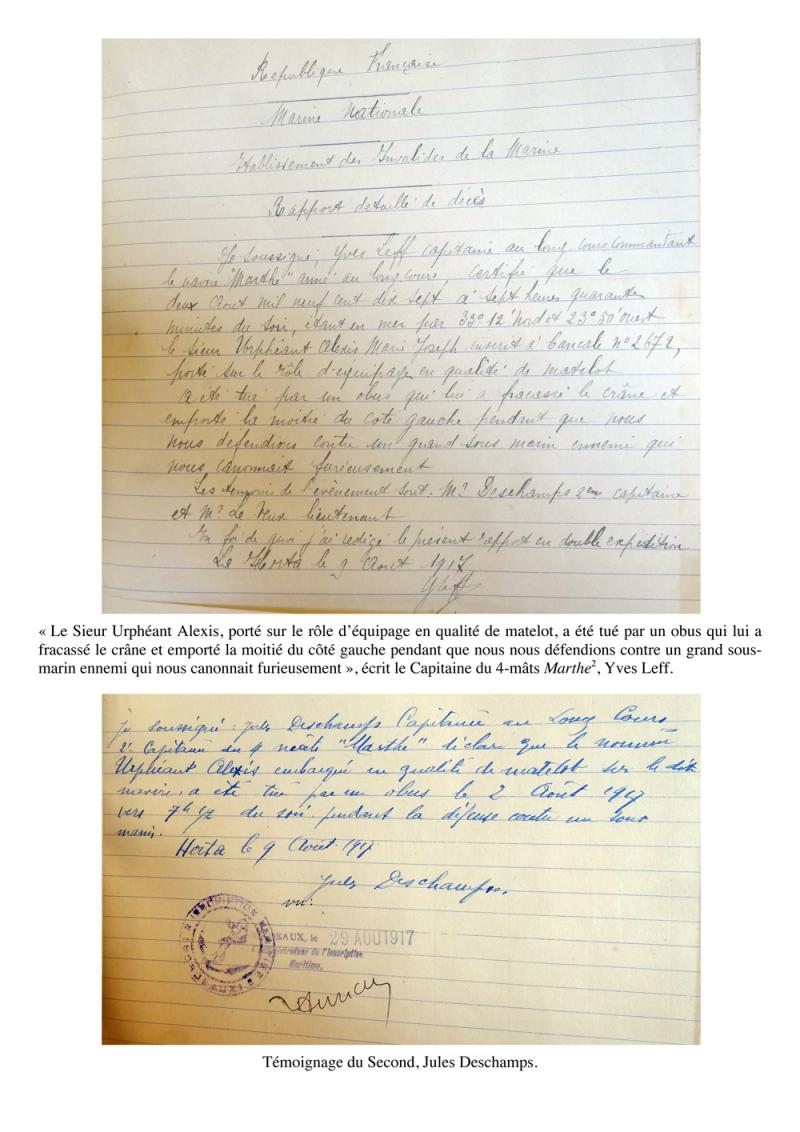 Republique Française
Marine Nationale
Etablissement des Invalides de la Marine
Rapport detaillé de décès
Je soussigné, Yves Leff capitaine au long cours commandant
le navire "Marthe" armé au long cours certifie que le
deux Aout mil neuf cent dix sept à sept heures quarante
minutes du soir, étant en mer par 33° 12' Nord et 23° 50' ouest
le sieur Urphéant Alexis Marie Joseph inscrit à Cancale n° 2672,
porté sur le rôle d'équipage en qualité de matelot
a été tué par un obus qui lui a fracassé le crâne et
emporté la moitié du coté gauche pendant que nous
nous défendions contre un grand sous marin ennemi qui
nous canonnait furieusement
Les temoins de l'évènement sont. Mr Deschamps 2em capitaine
et Mr Le Veux lieutenant
En foi de quoi j'ai redigé le présent rapport en double expedition
La Horta le 9 Aout 1917
YLeff
« Le Sieur Urphéant Alexis, porté sur le rôle d'équipage en qualité de matelot, a été tué par un obus qui lui a
fracassé le crâne et emporté la moitié du côté gauche pendant que nous nous défendions contre un grand sous-
marin ennemi qui nous canonnait furieusement », écrit le Capitaine du 4-mâts Marthe², Yves Leff.
je soussigné : Jules Deschamps Capitaine au Long Cours
2e Capitaine du 4 mâts "Marthe" déclare que le nommé
Urphéant Alexis embarqué en qualité de matelot sur le dit
navire, a été tué par un obus le 2 Août 1917
vers 7h 1/2 du soir pendant la défense contre un sous
marin.
Horta le 9 Août 1917
Jules Deschamps.
vu:
EAUX, le 29 AOU 1917
de l'Inscription
Maritime,
Témoignage du Second, Jules Deschamps.